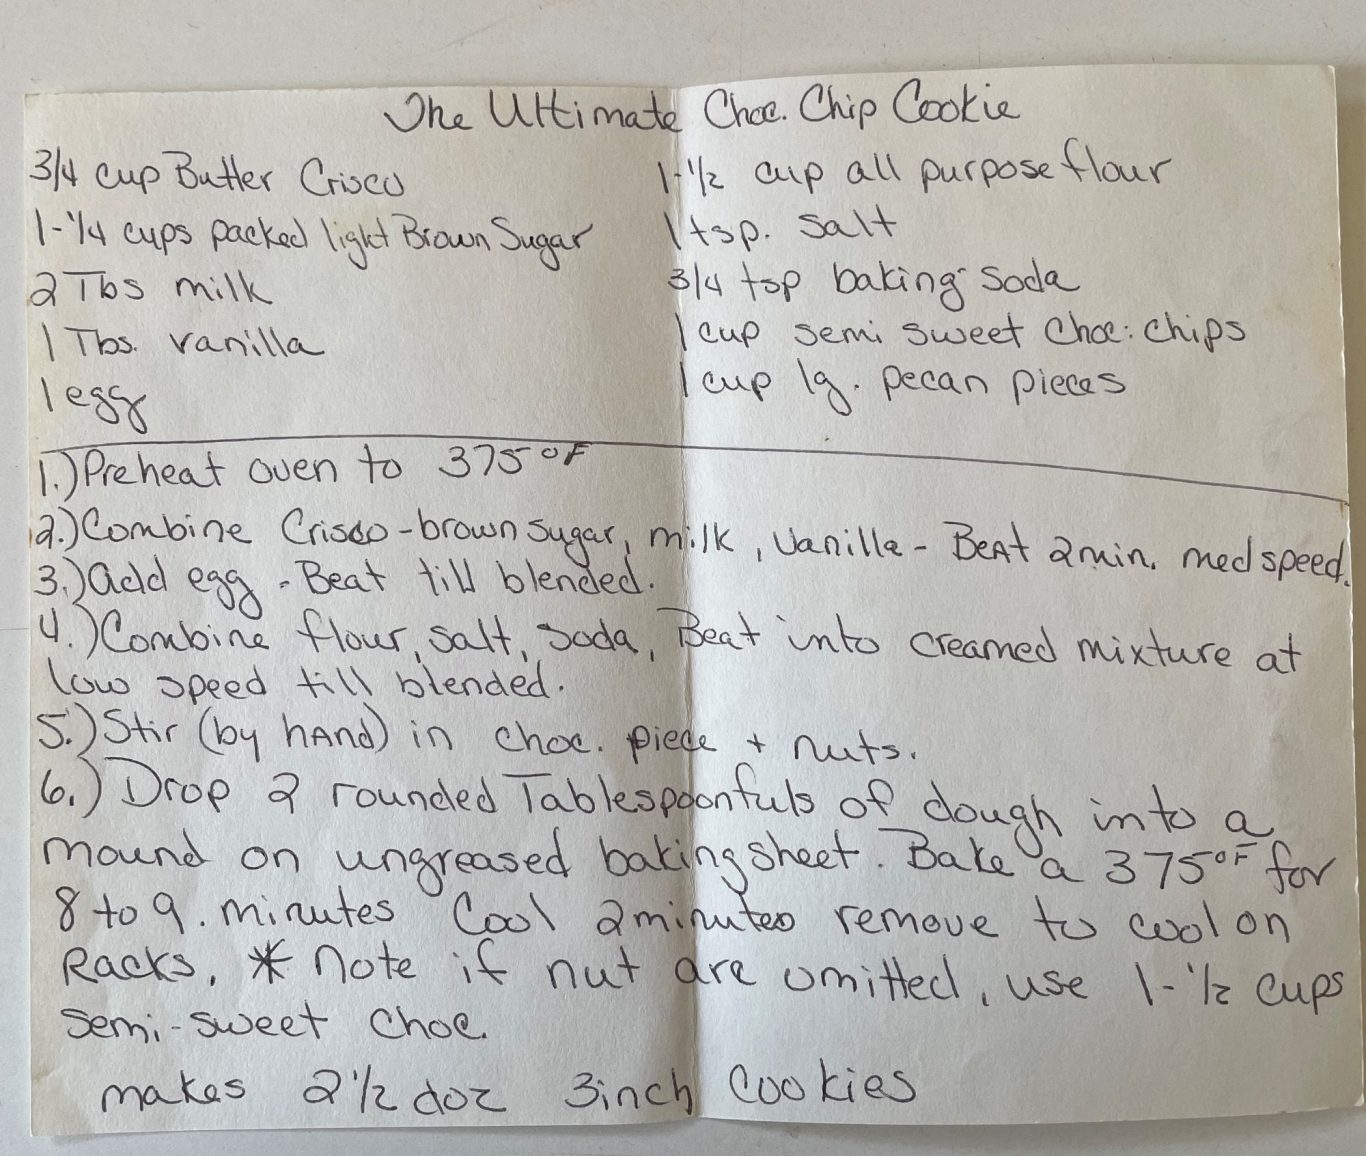 The Ultimate Choc. Chip Cookie
3/4 cup Butter Crisco
1-1/4 cups packed light Brown Sugar
2 Tbs milk
1 Tbs. vanilla
1 egg
1-1/2 cup all purpose flour
1 tsp. salt
3/4 tsp baking soda
1 cup semi sweet choc. chips
1 cup lg. pecan pieces
1.) Preheat oven to 375°F
2.) Combine Crisco-brown sugar, milk, vanilla - Beat 2 min. med speed.
3.) add egg - Beat till blended.
4.) Combine flour, salt, soda, Beat into creamed mixture at
low speed till blended.
5.) Stir (by hand) in choc. piece + nuts.
6.) Drop 2 rounded Tablespoonfuls of dough into a
mound on ungreased baking sheet. Bake a 375°F for
8 to 9. minutes Cool 2 minutes remove to cool on
Racks. * note if nut are omitted, use 1-1/2 cups
semi-sweet choc.
makes 2 1/2 doz 3 inch cookies